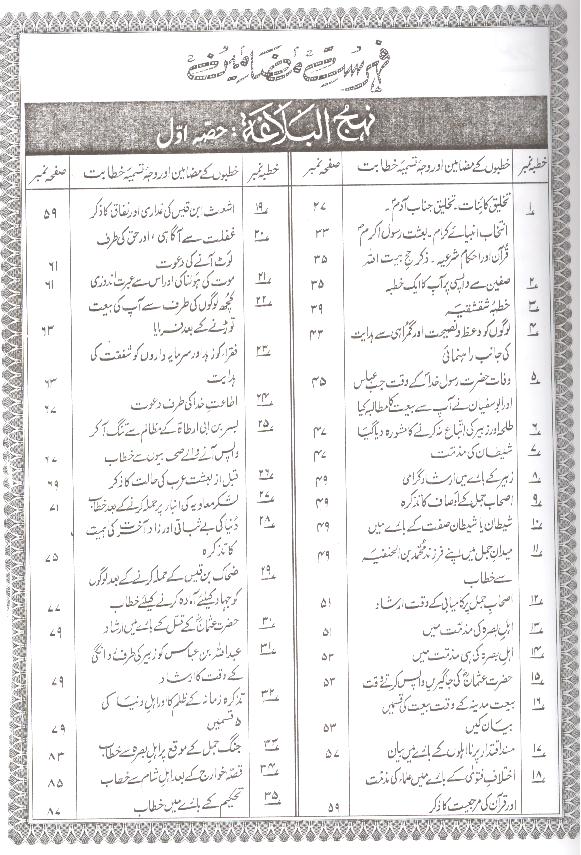 فہرست مضامین
نہج البلاغۃ : حصہ اوّل
خطبہ نمبر خطبوں کے مضامین اور وجہ تسمیۂ خطابت صفحہ نمبر
۱ تخلیق کائنات۔ تخلیق جناب آدمؑ۔ ۲۷
انتخاب انبیائے کرام۔ بعثت رسول اکرمؐ ۳۳
قرآن اور احکام شرعیہ۔ ذکر حج بیت اللہ ۳۵
۲ صفین سے واپسی پر آپ کا ایک خطبہ ۳۵
۳ خطبۂ شقشقیہ ۳۹
۴ لوگوں کو وعظ و نصیحت اور گمراہی سے ہدایت ۴۳
کی جانب راہنمائی
۵ وفات حضرت رسول خداؐ کے وقت جب عباس ۴۵
اور ابوسفیان نے آپ سے بیعت کا مطالبہ کیا
۶ طلحہ اور زبیر کی اتباع نہ کرنے کا مشورہ دیا گیا ۴۷
۷ شیطان کی مذمت ۴۷
۸ زبیر کے بارے میں ارشاد گرامی ۴۹
۹ اصحاب جمل کے اوصاف کا تذکرہ ۴۹
۱۰ شیطان یا شیطان صفت کے بارے میں ۴۹
۱۱ میدان جمل میں اپنے فرزند محمد بن الحنفیہ ۴۹
سے خطاب
۱۲ اصحاب جمل پر کامیابی کے وقت ارشاد ۵۱
۱۳ اہل بصرہ کی مذمت میں ۵۱
۱۴ اہل بصرہ کی ہی مذمت میں ۵۳
۱۵ حضرت عثمانؓ کی جاگیریں واپس کرتے وقت ۵۳
۱۶ بیعت مدینہ کے وقت بیعت کی قسمیں
بیان کیں ۵۳
۱۷ مسند اقتدار پر نااہلوں کے بارے میں بیان ۵۷
۱۸ اختلاف فتویٰ کے بارے میں علماء کی مذمت
اور قرآن کی مرجعیت کا ذکر ۵۹
خطبہ نمبر خطبوں کے مضامین اور وجہ تسمیۂ خطابت صفحہ نمبر
۱۹ اشعث ابن قیس کی غداری اور نفاق کا ذکر ۵۹
۲۰ غفلت سے آگاہی، اور حق کی طرف
لوٹ آنے کی دعوت ۶۱
۲۱ موت کی ہولناکی اور اس سے عبرت اندوزی ۶۱
۲۲ کچھ لوگوں کی طرف سے آپ کی بیعت
توڑنے کے بعد فرمایا ۶۳
۲۳ فقراء کو زہد اور سرمایہ داروں کو شفقت کی
ہدایت ۶۳
۲۴ اطاعت خدا کی طرف دعوت ۶۷
۲۵ بسر بن ابی ارطاۃ کے مظالم سے تنگ آ کر
واپس آنے والے صحابیوں سے خطاب ۶۷
۲۶ قبل از بعثت عرب کی حالت کا ذکر ۶۹
۲۷ لشکر معاویہ کی انبار پر حملہ کرنے کے بعد خطاب ۷۱
۲۸ دنیا کی بے ثباتی اور زاد آخرت کی اہمیت
کا تذکرہ ۷۵
۲۹ ضحاک بن قیس کے حملہ کرنے کے بعد لوگوں
کو جہاد کیلئے آمادہ کرنے کیلئے خطاب ۷۷
۳۰ حضرت عثمانؓ کے قتل کے بارے میں ارشاد ۷۹
۳۱ عبداللہ بن عباس کو زبیر کی طرف روانگی
کے وقت کا ارشاد ۷۹
۳۲ تذکرہ زمانہ کے ظلم کا اور اہل دنیا کی
۵ قسمیں ۷۹
۳۳ جنگ جمل کے موقع پر اہل بصرہ سے خطاب ۸۳
۳۴ قصۂ خوارج کے بعد اہل شام سے خطاب ۸۵
۳۵ تحکیم کے بارے میں خطاب ۸۷